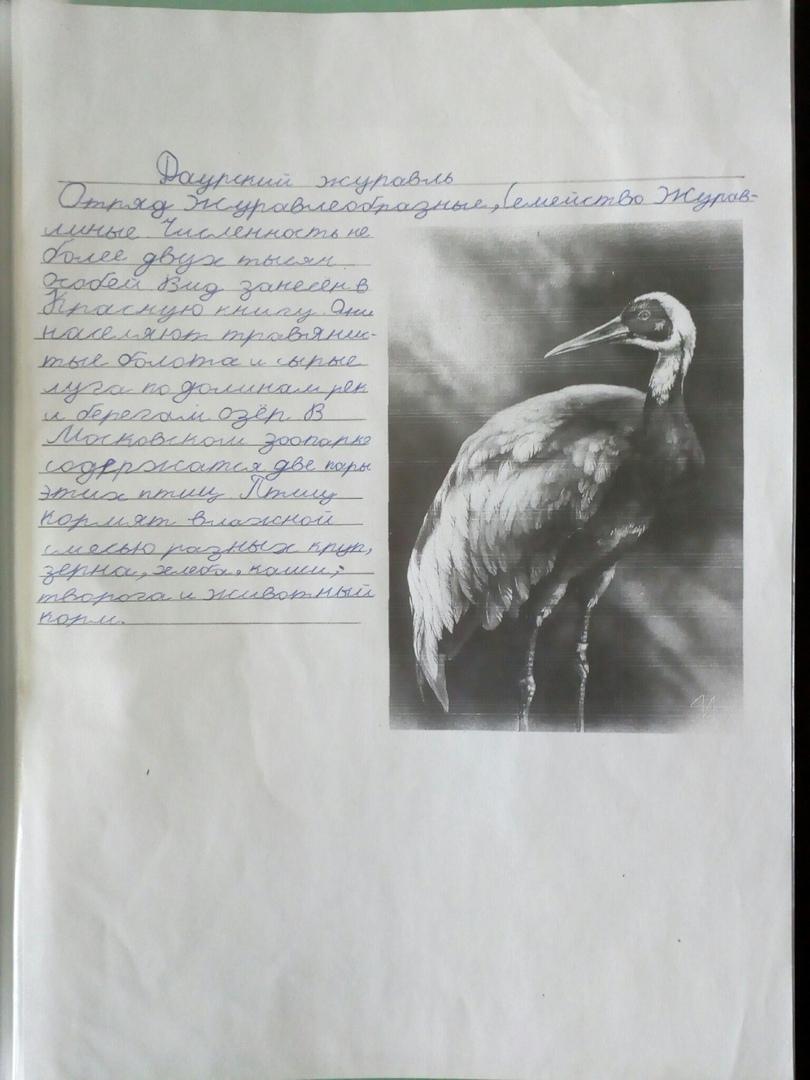 Даурский журавль
Отряд Журавлеобразные, Семейство Журав-
линые Численность не
более двух тысяч
особей Вид занесён в
Красную книгу Они
населяют травянис-
тые болота и сырые
луга по долинам рек
и берегам озёр В
Московском зоопарке
содержатся две пары
этих птиц Птиц
кормят влажной
смесью разных круп,
зерна, хлеба, каши,
творога и животный
корм.